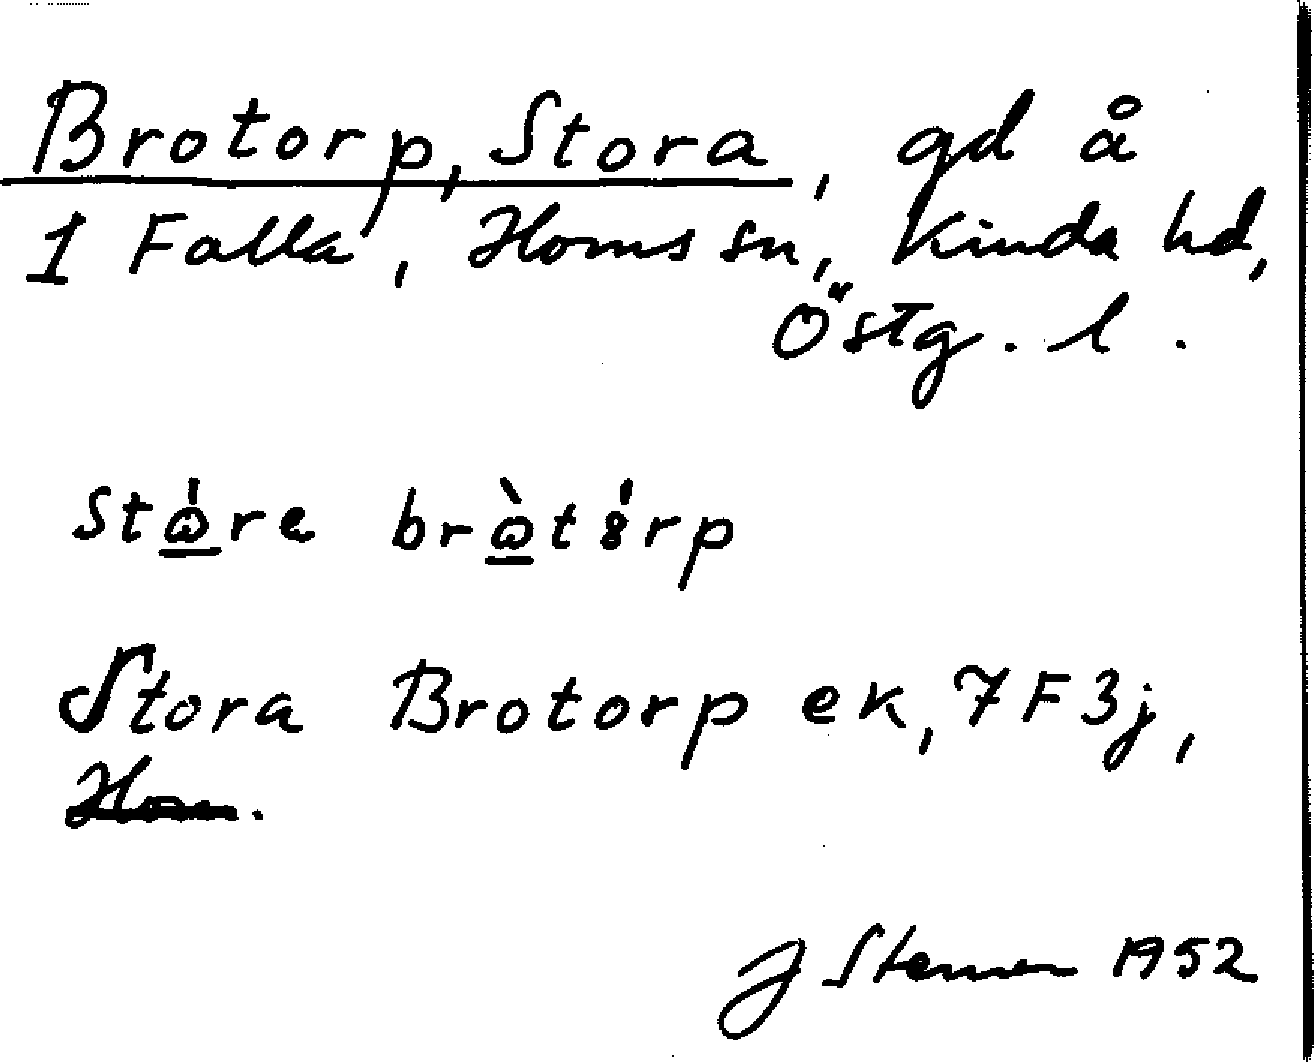 Brotorp, Stora, gd å
1 Falla, Horns sn, Kinda hd,
Östg. l.
stòre bròtórp
Stora Brotorp ek, 7F3j,
Horn.
J Stenner 1952